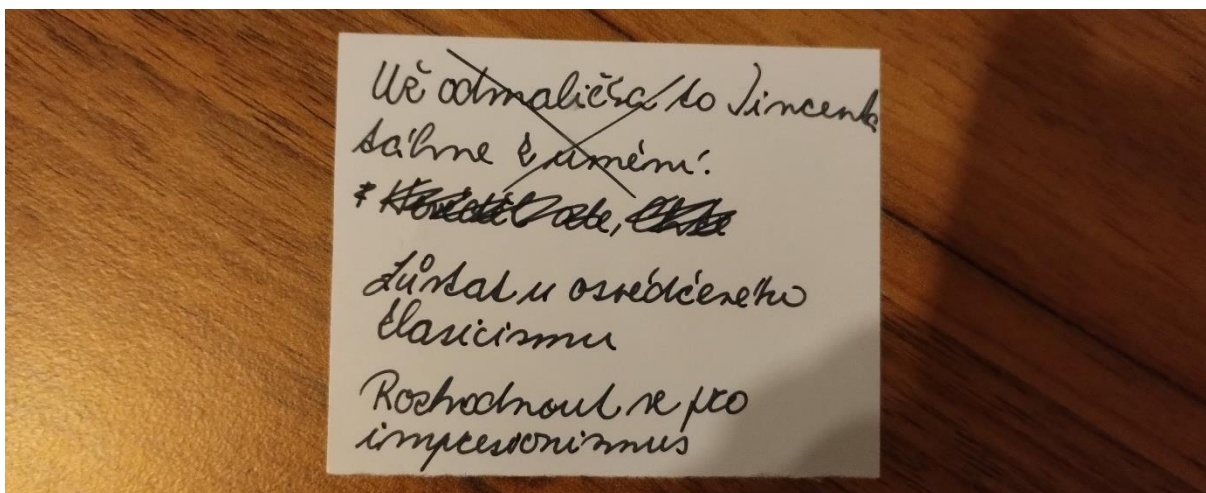 Už odmalička to Vincenta
táhne k umění.
*
Zůstat u osvědčeného
klasicismu
Rozhodnout se pro
impresionismus